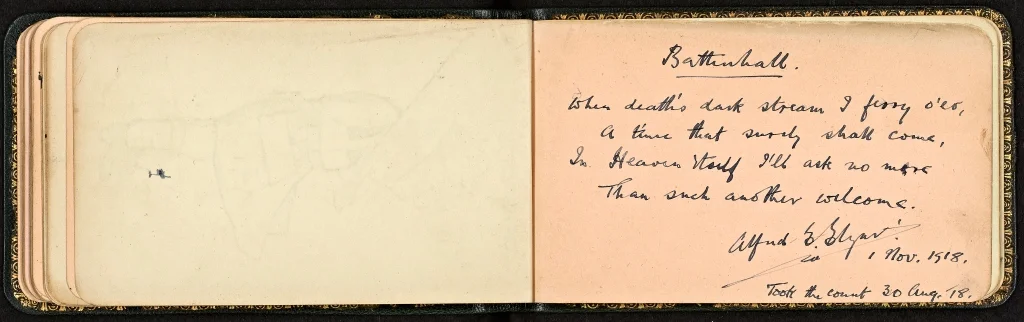 Battenhall.
When death's dark stream I ferry o'er,
A time that surely shall come,
In Heaven itself I'll ask no more
Than such another welcome.
Alfred E.
1 Nov. 1918.
Took the count 30 Aug. '18.